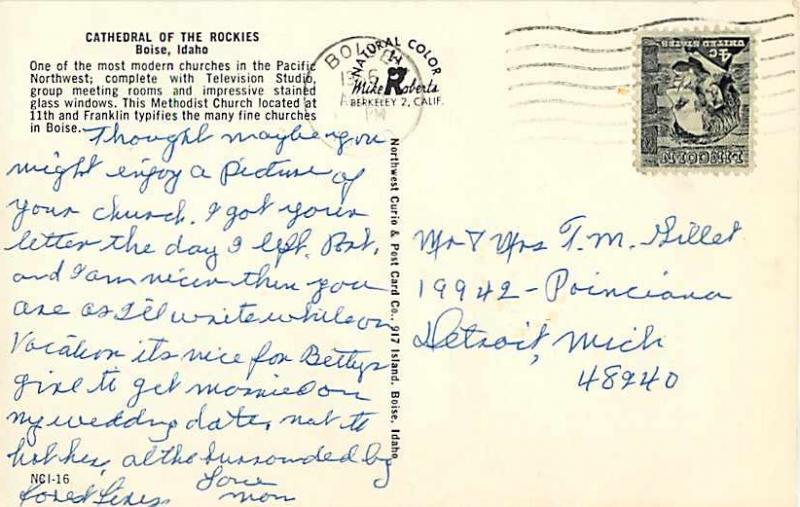 CATHEDRAL OF THE ROCKIES
Boise, Idaho
One of the most modern churches in the Pacific
Northwest; complete with Television Studio,
group meeting rooms and impressive stained
glass windows. This Methodist Church located at
11th and Franklin typifies the many fine churches
in Boise.
Thought maybe you
might enjoy a Picture of
your church. I got your
letter the day I left. Port,
and I am nicer then you
are as I'll write while on
Vacation its nice for Bettys
girl to get married on
my wedding date, not to
hot here, altho surrounded by
forest fires.
Love
Mom
NCI-16
BOISE
PM
NATURAL COLOR
Mike Roberts
BERKELEY 2, CALIF.
Northwest Curio & Post Card Co., 917 Island, Boise, Idaho
LINCOLN
4c
UNITED STATES
Mr & Mrs T. M. Gillet
19942 - Poinciana
Detroit, Mich
48240